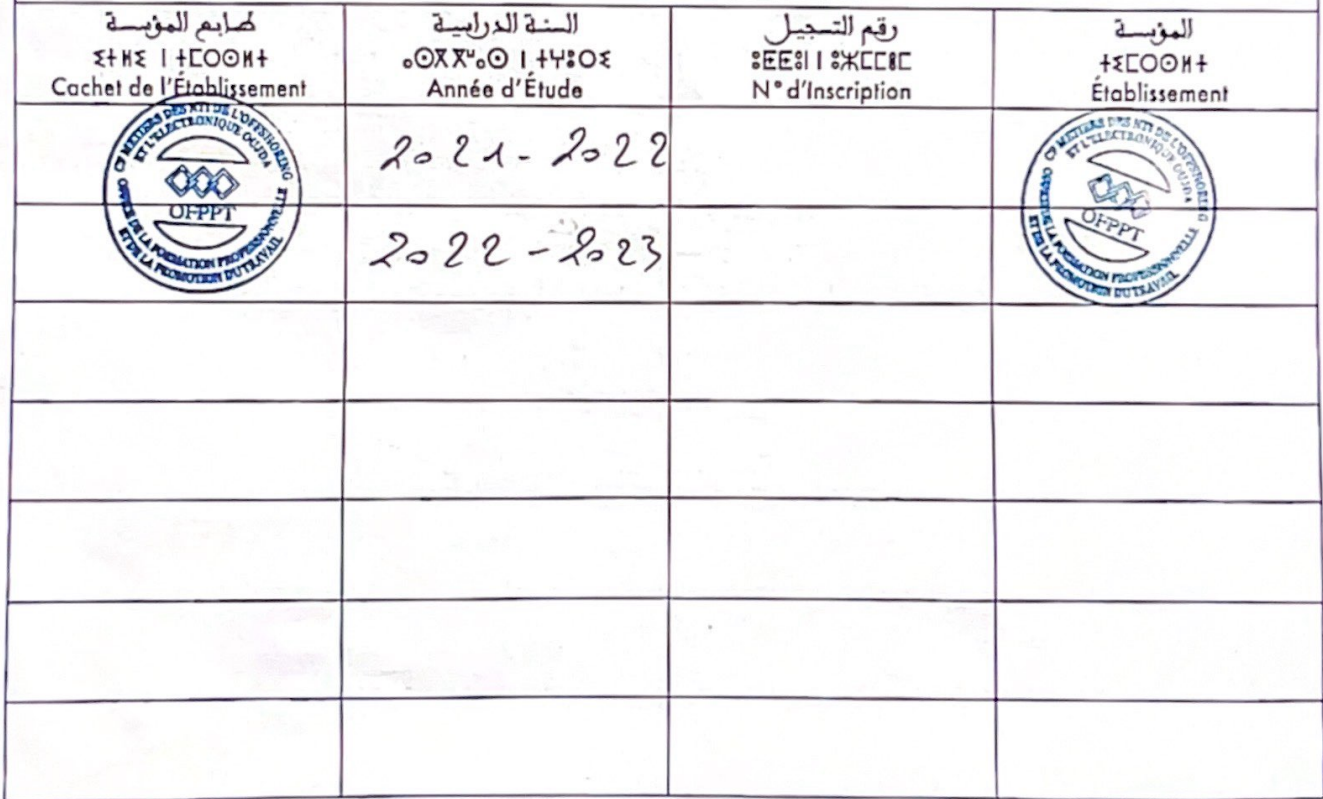 طابع المؤسسة
ⵉⵜⵍⵉ ⵏ ⵜⵎⵔⵙⵍⵜ
Cachet de l'Établissement
السنة الدراسية
ⴰⵙⴳⴳⵯⴰⵙ ⵏ ⵜⵖⵓⵔⵉ
Année d'Étude
رقم التسجيل
ⵓⵟⵟⵓⵏ ⵏ ⵓⵣⵎⵎⴻⵎ
N° d'Inscription
المؤسسة
ⵜⵉⵎⵔⵙⵍⵜ
Établissement
CF METIERS DES NTI DE L'OFFSHORING
ET L'ELECTRONIQUE OUJDA
OFPPT
OFFICE DE LA FORMATION PROFESSIONNELLE
ET DE LA PROMOTION DU TRAVAIL
2021-2022
CF METIERS DES NTI DE L'OFFSHORING
ET L'ELECTRONIQUE OUJDA
OFPPT
OFFICE DE LA FORMATION PROFESSIONNELLE
ET DE LA PROMOTION DU TRAVAIL
2022-2023